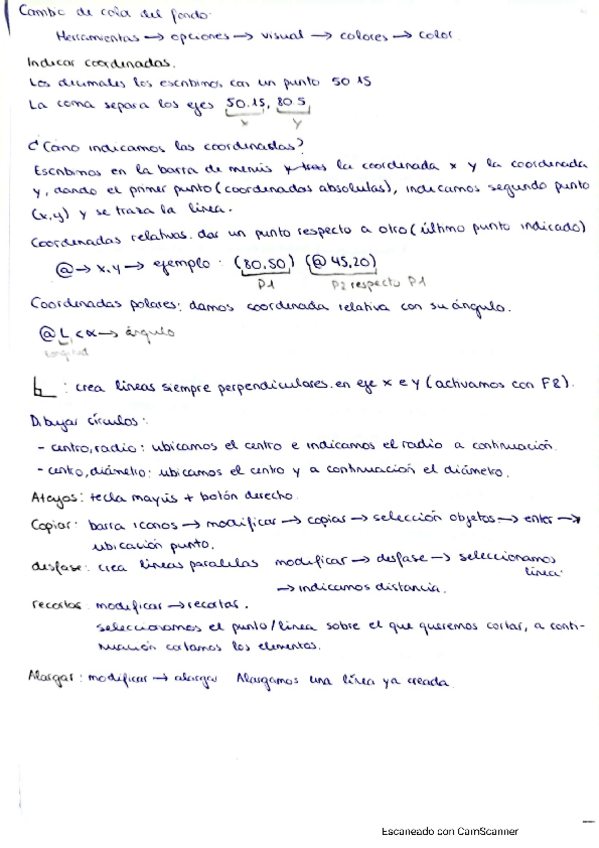 Cambio de color del fondo.
Herramientas → opciones → visual → colores → color.
Indicar coordenadas.
Los decimales los escribimos con un punto 50.15
La coma separa los ejes 50.15, 80.5
x y
¿Cómo indicamos las coordenadas?
Escribimos en la barra de menús tras la coordenada x y la coordenada
y, dando el primer punto (coordenadas absolutas), indicamos segundo punto
(x,y) y se traza la línea.
Coordenadas relativas. dar un punto respecto a otro (último punto indicado)
@ → x,y → ejemplo: (80,50) (@ 45,20)
P1 P2 respecto P1
Coordenadas polares: damos coordenada relativa con su ángulo.
@ L < α → ángulo
longitud
: crea líneas siempre perpendiculares. en eje x e y (activamos con F8).
Dibujar círculos:
- centro, radio: ubicamos el centro e indicamos el radio a continuación.
- centro, diámetro: ubicamos el centro y a continuación el diámetro.
Atajos: tecla mayús + botón derecho.
Copiar: barra iconos → modificar → copiar → selección objetos → enter →
ubicación punto.
desfase: crea líneas paralelas modificar → desfase → seleccionamos
línea.
→ indicamos distancia.
recortar: modificar → recortar.
seleccionamos el punto/línea sobre el que queremos cortar, a conti-
nuación cortamos los elementos.
Alargar: modificar → alargar Alargamos una línea ya creada.
Escaneado con CamScanner